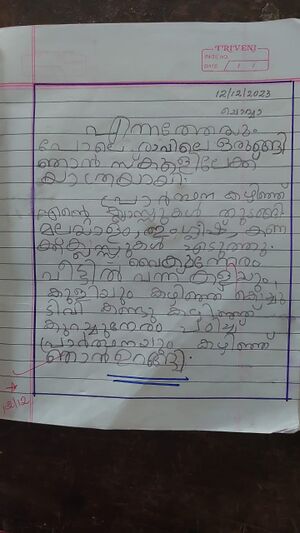 TRIVENI
PAGE NO.
DATE / /
12/12/2023
ചൊവ്വാ
എന്നത്തേതും
പോലെ രാവിലെ ഒരുങ്ങി
ഞാൻ സ്കൂളിലേക്ക്
യാത്രയായി.
പ്രാർത്ഥന കഴിഞ്ഞ്
എൻ്റെ ക്ലാസ്സുകൾ തുടങ്ങി
മലയാളം, ഇംഗ്ലീഷ്, കണ
ക്ക് ക്ലാസ്സുകൾ എടുത്തു.
വൈകുന്നേരം
വീട്ടിൽ വന്ന് കളിയും,
കുളിയും കഴിഞ്ഞ് കുറച്ചു
ടിവി കണ്ടു കഴിഞ്ഞ്
കുറച്ചുനേരം പഠിച്ചു
പ്രാർത്ഥനയും കഴിഞ്ഞ്
ഞാൻ ഉറങ്ങി.
12/12